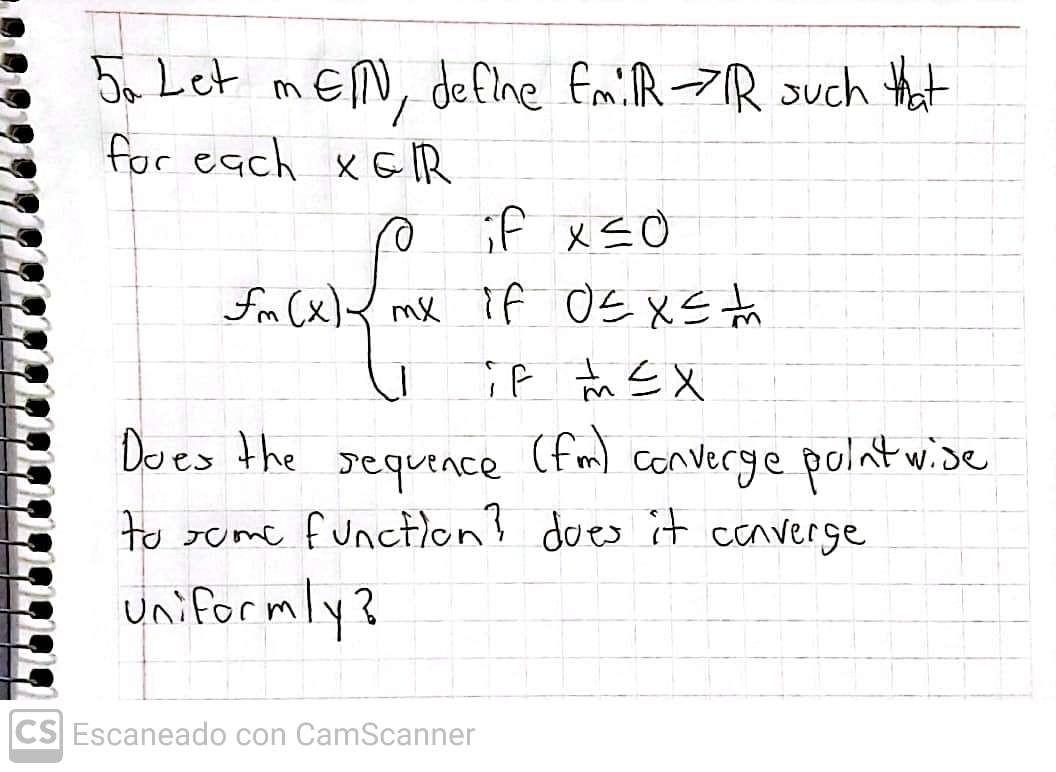 5. Let m ∈ ℕ, define fm: ℝ → ℝ such that
for each x ∈ ℝ
0 if x ≤ 0
fm(x) { mx if 0 ≤ x ≤ 1/m
1 if 1/m ≤ x
Does the sequence (fm) converge pointwise
to some function? does it converge
uniformly?
CS Escaneado con CamScanner